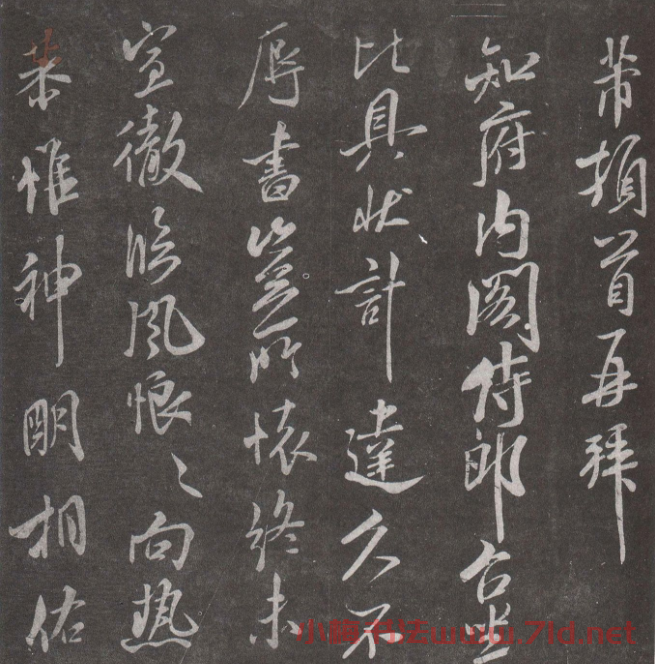 芾頓首再拜
知府内閣侍郎台坐
比具状計達久不
辱書豈所懐終未
宣徹臨風恨〻向热
恭惟神明相佑
小楷书法www.7ld.net